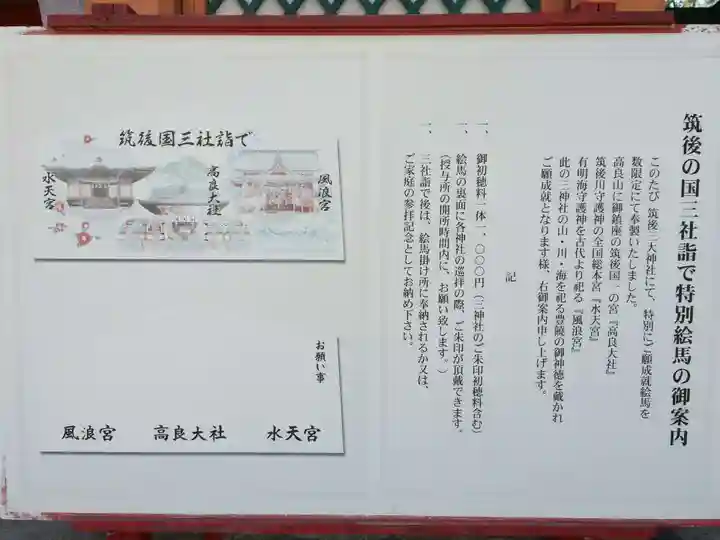 筑後の国三社詣で特別絵馬の御案内
このたび 筑後三大神社にて、特別にご願成就絵馬を
数限定にて奉製いたしました。
高良山に御鎮座の筑後国一の宮『高良大社』
筑後川守護神の全国総本宮『水天宮』
有明海守護神を古代より祀る『風浪宮』
此の三神社の山・川・海を祀る豊饒の御神徳を戴かれ
ご願成就となります様、右御案内申し上げます。
記
一、御初穂料一体一、〇〇〇円(三神社のご朱印初穂料含む)
一、絵馬の裏面に各神社の巡拝の際、ご朱印が頂戴できます。
(授与所の開所時間内に、お願い致します。)
一、三社詣で後は、絵馬掛け所に奉納されるか又は、
ご家庭の参拝記念としてお納め下さい。
筑後国三社詣で
風浪宮
高良大社
水天宮
お願い事
風浪宮 高良大社 水天宮